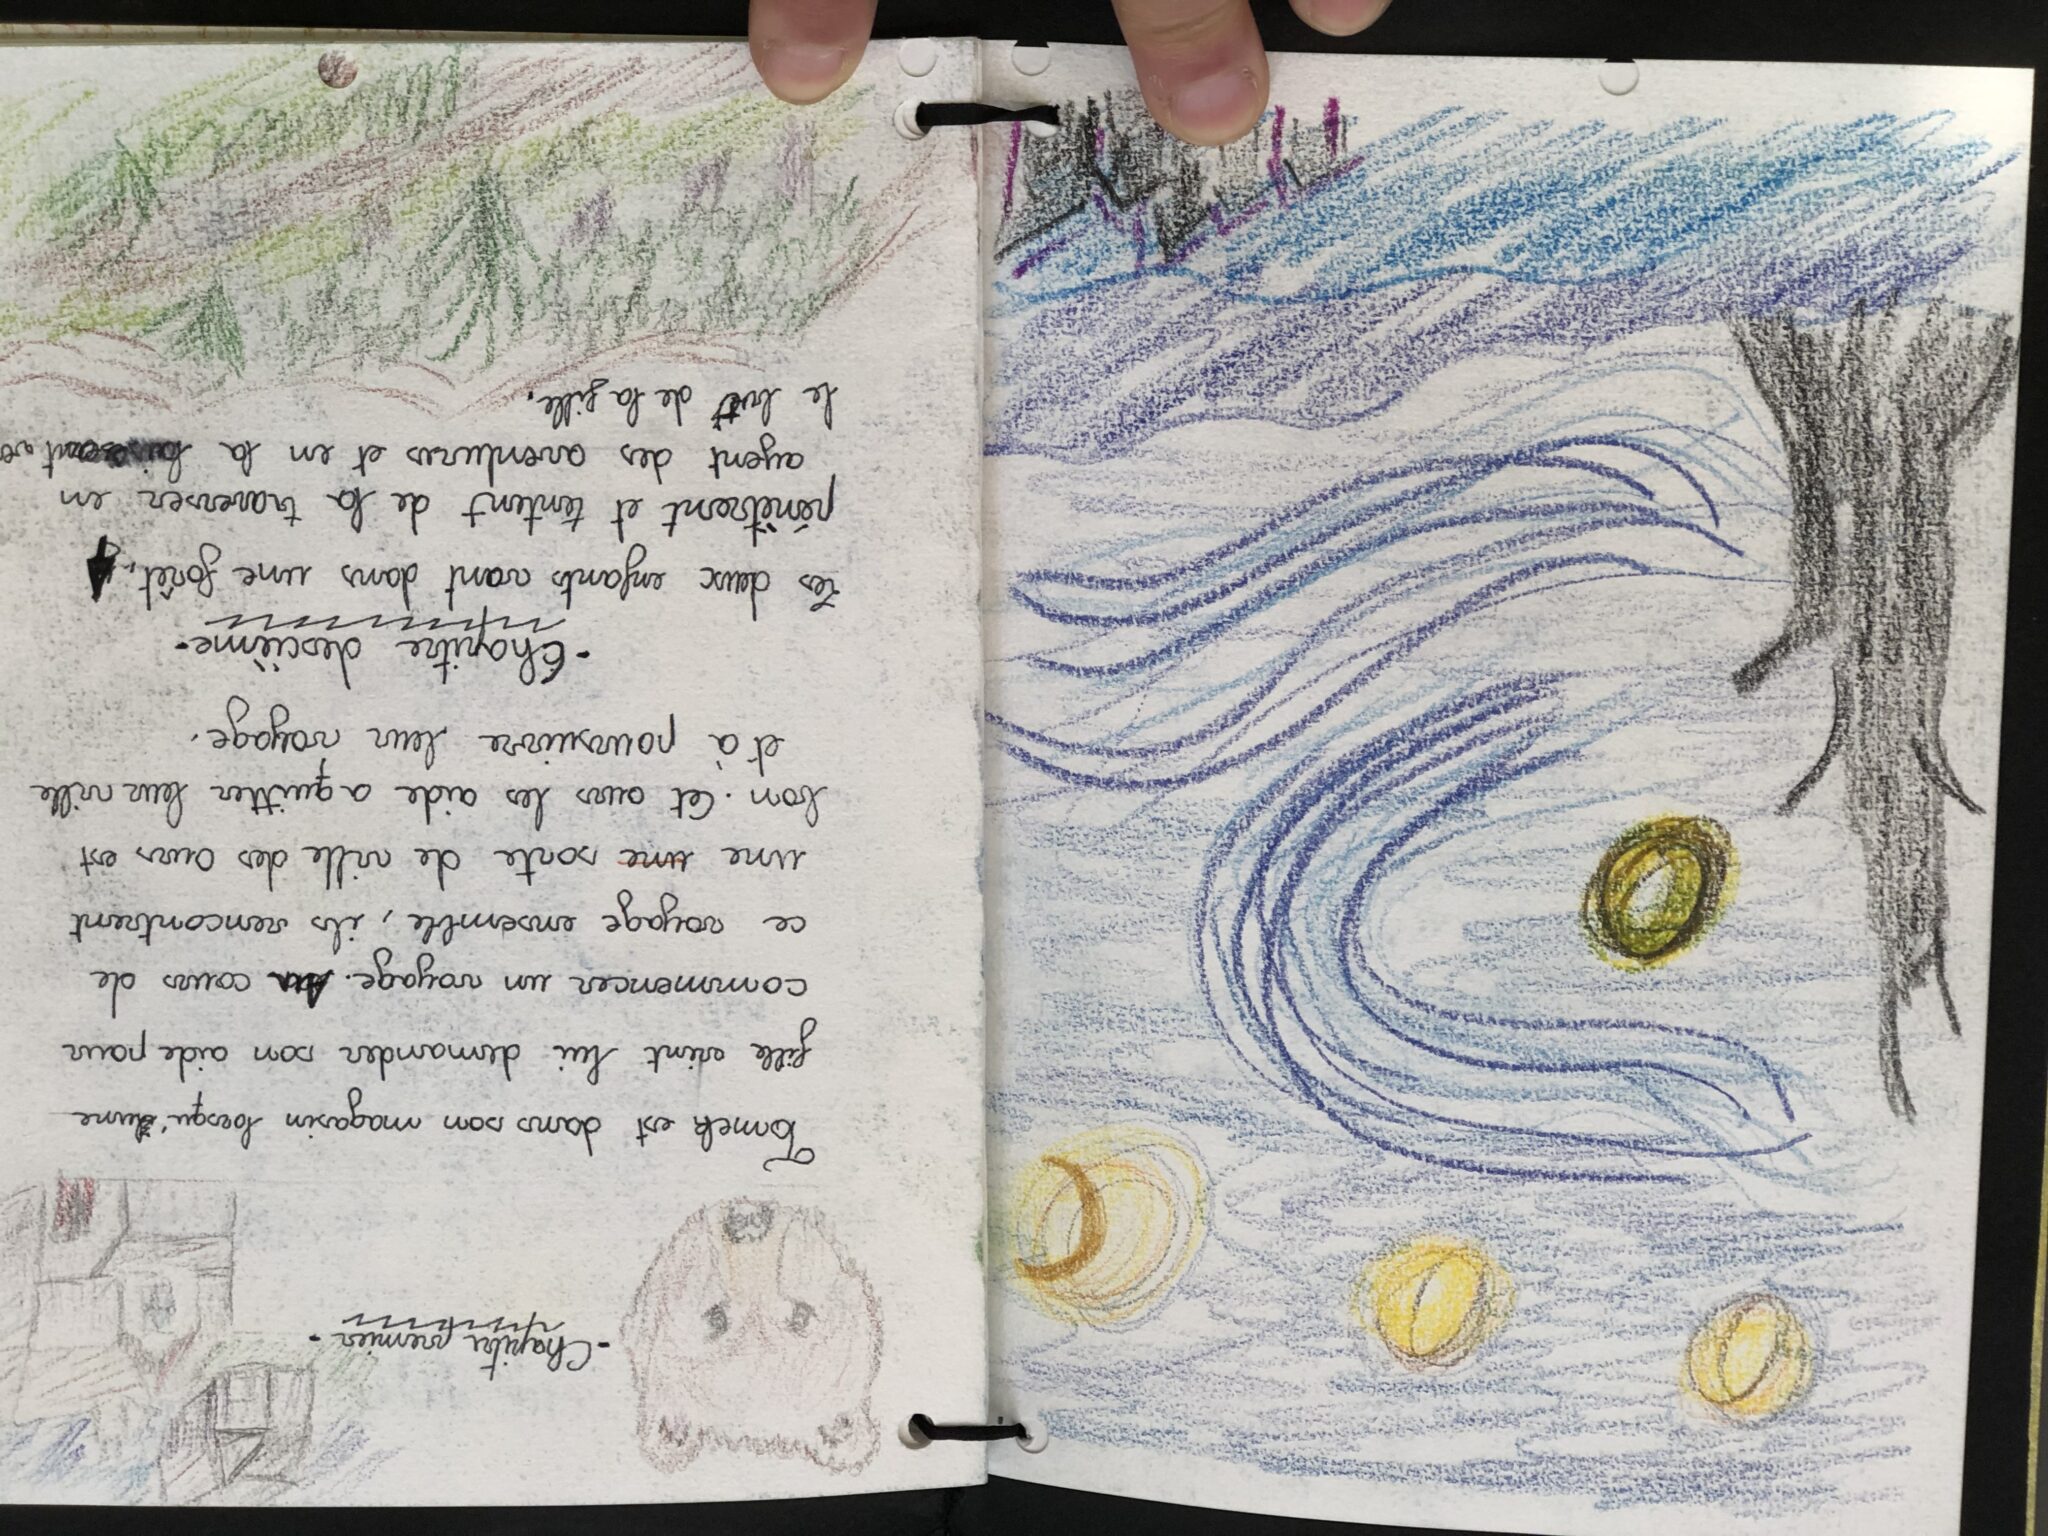 - Chapitre premier -
Tomek est dans son magasin lorsqu'une
fille vient lui demander son aide pour
commencer un voyage. Au cours de
ce voyage ensemble, ils rencontrent
une une sorte de ville des ours est
bon. Cet ours les aide a quitter leur ville
et à poursuivre leur voyage.
- Chapitre descième -
Les deux enfants vont dans une forêt,
pénètrent et tentent de la traverser en
ayent des aventures et en la laissant
le but de la fille.